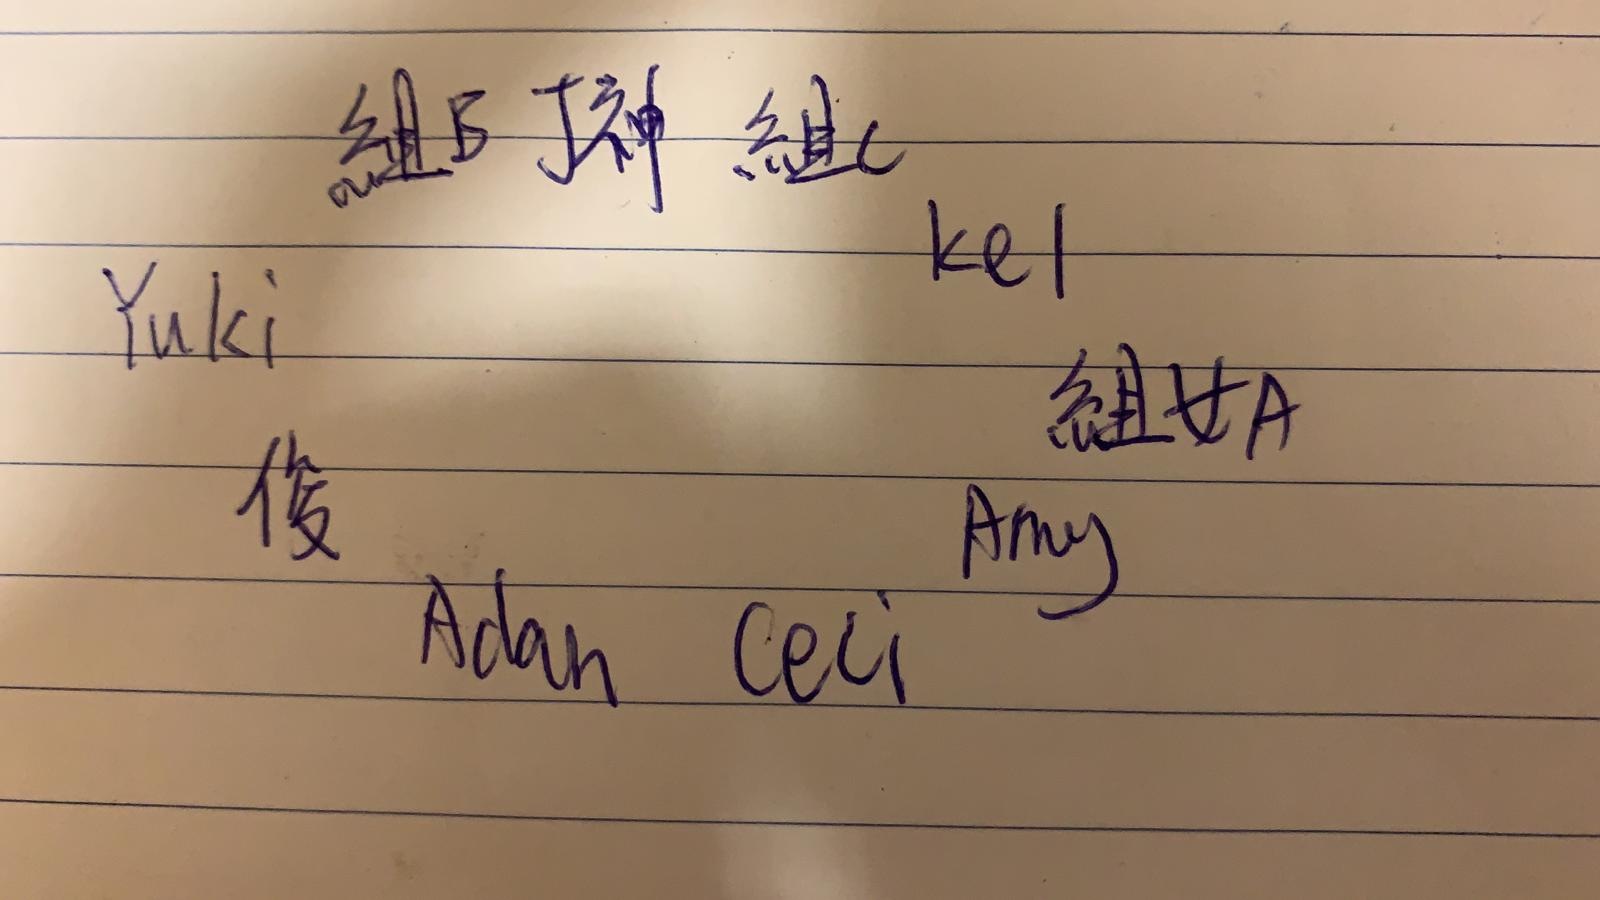 組B J神 組C
kel
Yuki
組女A
俊
Amy
Adan Ceci